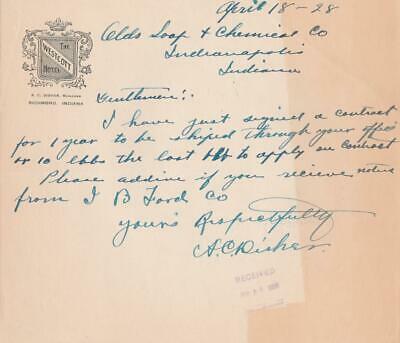 April 18-28
THE
WESTCOTT
HOTEL
A. C. DICHER, MANAGER
RICHMOND, INDIANA
Olds Soap & Chemical Co
Indianapolis
Indiana
Gentlemen:
I have just signed a contract
for 1 year to be shiped through your office
or 10 bbls the last to apply on contract
Please addvise if you recieve notice
from J B Ford Co
yours Respectfully
A.C. Dicher
RECEIVED